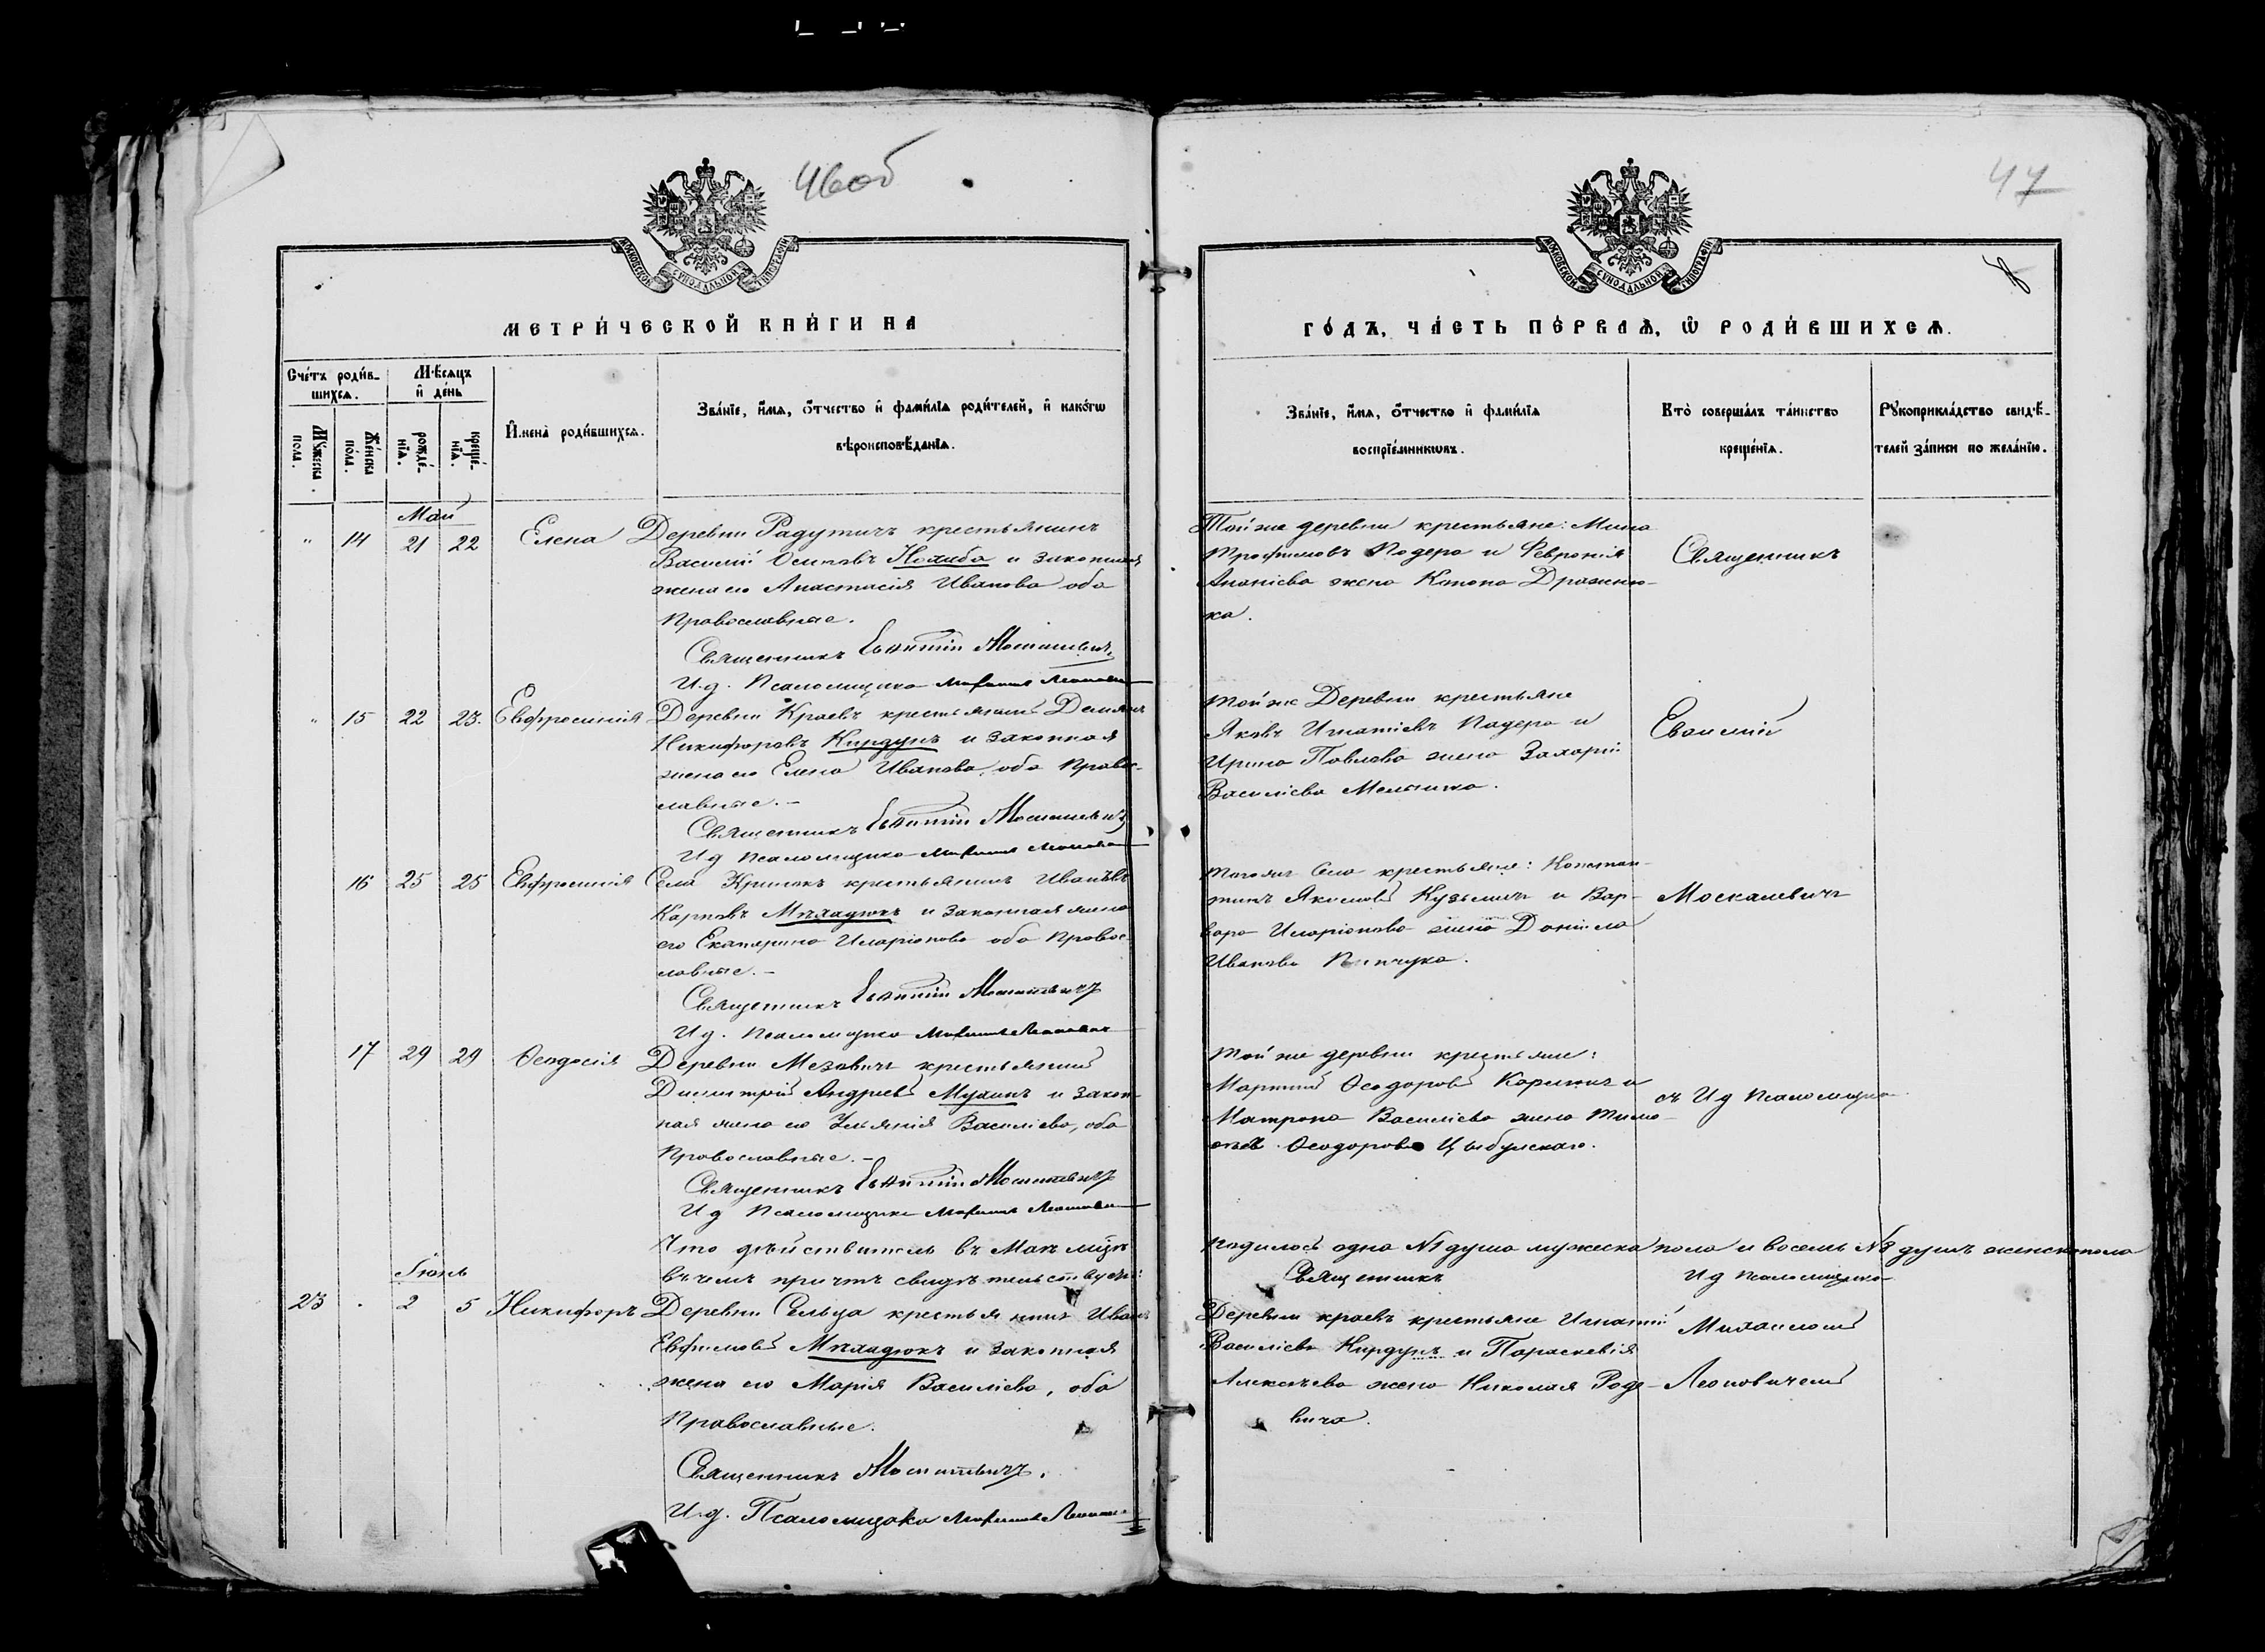 46об
МОСКОВСКОЙ СѴНОДАЛЬНОЙ ТИПОГРАФІИ
МЕТРИ́ЧЕСКОЙ КНИ́ГИ НА
Сче́тъ роди́в-
шихсѧ.
Мѣсѧцъ
и҆ де́нь
Мꙋ́жеска
пола.
Же́нска
по́ла.
рожде́-
нїѧ.
креще́-
нїѧ.
И҆мена̀ роди́вшихсѧ.
Зва́нїе, и҆́мѧ, ѻ҆́тчество и҆ фами́лїѧ роди́телей, и҆ како́гѡ
вѣроисповѣ́данїѧ.
Май
" 14 21 22 Елена Деревни Радутичъ крестьянинъ
Василій Осиповъ и законная
жена его Анастасія Иванова оба
Православные.
Священникъ Евѳимій Москалевичъ
И.д. Псаломщика Михаилъ Леонович
" 15 22 23. Евфросинія Деревни Краевъ крестьянинъ Демьянъ
Никифоровъ Кирдунъ и законная
жена его Елена Иванова, оба Право-
славные.-
Священникъ Евѳимій Москалевичъ
И д Псаломщика Михаилъ Леонович
16 25 25 Евфросинія Села крестьянинъ Иванъ
Карповъ Михадюкъ и законная жена
его Екатерина Иларіонова оба Правос-
лавные.-
Священникъ Евѳимій Москалевичъ
И д. Псаломщика Михаилъ Леонович
17 29 29 Ѳеодосія Деревни крестьянинъ
Димитрій Андреевъ Мухинъ и закон-
ная жена его Ульянія Василіева, оба
Православные.-
Священникъ Евѳимій Москалевичъ
И д Псаломщика Михаилъ Леонович
Что дѣйствительно въ Маѣ мѣсяцѣ
въ чемъ причтъ свидѣтельствуетъ:
Іюнь
23 . 2 5 Никифоръ Деревни Сельца крестьянинъ Иванъ
Евфимовъ Михадюкъ и законная
жена его Марія Василіева, оба
Православные.
Священникъ Москалевичъ.
И.д. Псаломщика Михаилъ Леонович
47
8
МОСКОВСКОЙ СѴНОДАЛЬНОЙ ТИПОГРАФІИ
ГО́ДЪ, ЧА́СТЬ ПЕ́РВАѦ, Ѿ РОДИ́ВШИХСѦ.
Зва́нїе, и҆́мѧ, ѻ҆́тчество и҆ фами́лїѧ
воспрїе́мникѡвъ.
Кто̀ соверша́лъ та́инство
креще́нїѧ.
Рꙋкоприкла́дство свидѣ́-
телей за́писи по жела́нїю.
Той же деревни крестьяне: Мина
Трофимовъ Подера и Февронія
Ананіева жена Конона Дражню-
ка.
Священникъ
Той же Деревни крестьяне
Яковъ Игнатіевъ Падера и
Ирина Павлова жена Захарія
Василіева Мельника.
Евѳимій
Того же Села крестьяне: Констан-
тинъ Якимовъ Кузьмичъ и Вар-
вара Иларіонова жена Даніила
Иванова Пинчука.
Москалевичъ
Той же деревни крестьяне:
Мартинъ Ѳеодоровъ и
Матрона Василіева жена Тимо-
ѳея Ѳеодорова Цыбульскаго.
съ И д Псаломщика
родилось одна №1 душа мужеска пола и восемь №8 душъ женска пола
Священникъ И д Псаломщика
Деревни краевъ крестьяне Игнатій
Василіевъ Кирдунъ и Параскевія
Алексѣева жена Николая Роде-
вича.
Михаиломъ
Леоновичемъ